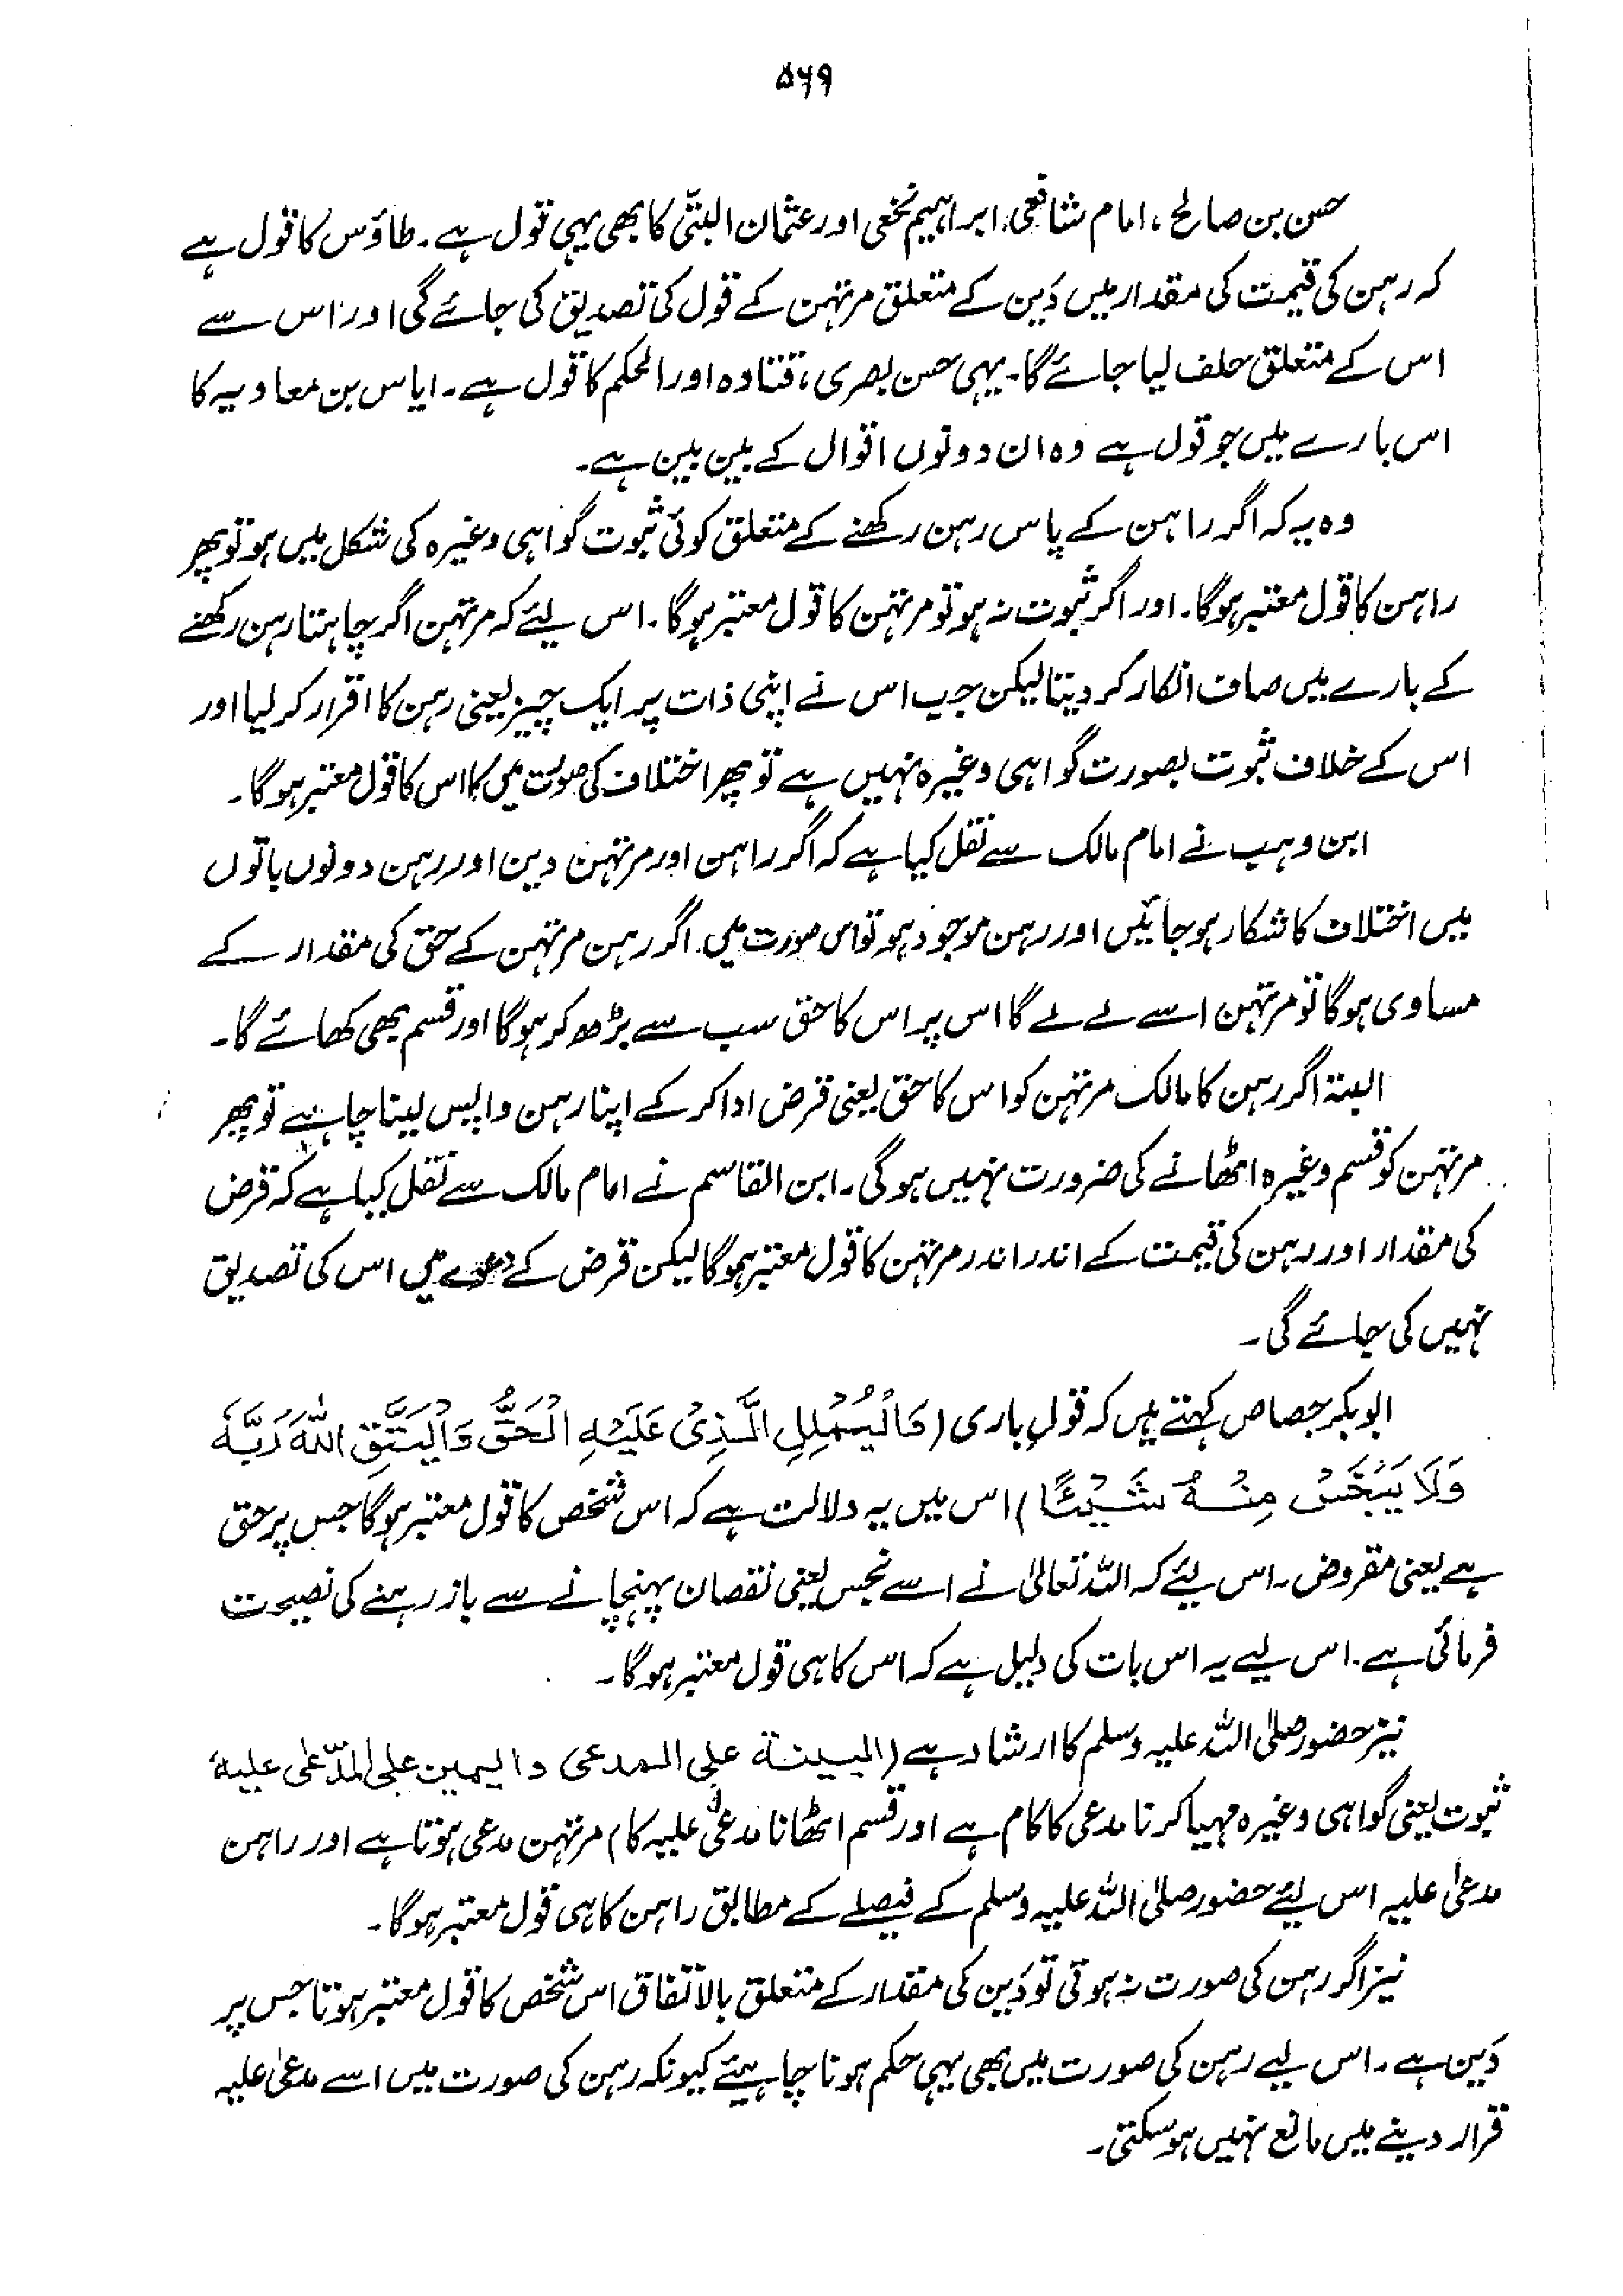 ۵۶۹
حسن بن صالح، امام شافعی، ابراہیم نخعی اور عثمان البتّی کا بھی یہی قول ہے۔ طاؤس کا قول ہے
کہ رہن کی قیمت کی مقدار میں دَین کے متعلق مرتہن کے قول کی تصدیق کی جائے گی اور اس سے
اس کے متعلق حلف لیا جائے گا۔ یہی حسن بصری، قتادہ اور الحکم کا قول ہے۔ ایاس بن معاویہ کا
اس بارے میں جو قول ہے وہ ان دونوں اقوال کے بین بین ہے۔
وہ یہ کہ اگر راہن کے پاس رہن رکھنے کے متعلق کوئی ثبوت گواہی وغیرہ کی شکل میں ہو تو پھر
راہن کا قول معتبر ہوگا۔ اور اگر ثبوت نہ ہو تو مرتہن کا قول معتبر ہوگا۔ اس لیئے کہ مرتہن اگر چاہتا رہن رکھنے
کے بارے میں صاف انکار کر دیتا لیکن جب اس نے اپنی ذات پر ایک چیز یعنی رہن کا اقرار کر لیا اور
اس کے خلاف ثبوت بصورت گواہی وغیرہ نہیں ہے تو پھر اختلاف کی صورت میں اس کا قول معتبر ہوگا۔
ابن وہب نے امام مالک سے نقل کیا ہے کہ اگر راہن اور مرتہن دین اور رہن دونوں باتوں
میں اختلاف کا شکار ہو جائیں اور رہن موجود ہو تو اس صورت میں اگر رہن مرتہن کے حق کی مقدار کے
مساوی ہوگا تو مرتہن اسے لے لے گا اس پر اس کا حق سب سے بڑھ کر ہوگا اور قسم بھی کھائے گا۔
البتہ اگر رہن کا مالک مرتہن کو اس کا حق یعنی قرض ادا کر کے اپنا رہن واپس لینا چاہے تو پھر
مرتہن کو قسم وغیرہ اٹھانے کی ضرورت نہیں ہوگی۔ ابن القاسم نے امام مالک سے نقل کیا ہے کہ قرض
کی مقدار اور رہن کی قیمت کے اندر اندر مرتہن کا قول معتبر ہوگا لیکن قرض کے دعوے میں اس کی تصدیق
نہیں کی جائے گی۔
ابوبکر جصاص کہتے ہیں کہ قولِ باری (فَالْيُمْلِلِ الَّذِیْ عَلَیْهِ الْحَقُّ وَالْیَتَّقِ اللّٰهَ رَبَّهٗ
وَلَا یَبْخَسْ مِنْهُ شَیْئًا) اس میں یہ دلالت ہے کہ اس شخص کا قول معتبر ہوگا جس پر حق
ہے یعنی مقروض۔ اس لیئے کہ اللہ تعالیٰ نے اسے نجس یعنی نقصان پہنچانے سے باز رہنے کی نصیحت
فرمائی ہے۔ اس لیے یہ اس بات کی دلیل ہے کہ اس کا ہی قول معتبر ہوگا۔
نیز حضور صلی اللہ علیہ وسلم کا ارشاد ہے (البینة علی المدعی والیمین علی المدّعٰی علیه
ثبوت یعنی گواہی وغیرہ مہیا کرنا مدعی کا کام ہے اور قسم اٹھانا مدعیٰ علیہ کا) مرتہن مدعی ہوتا ہے اور راہن
مدعیٰ علیہ اس لیئے حضور صلی اللہ علیہ وسلم کے فیصلے کے مطابق راہن کا ہی قول معتبر ہوگا۔
نیز اگر رہن کی صورت نہ ہوتی تو دَین کی مقدار کے متعلق بالاتفاق اس شخص کا قول معتبر ہوتا جس پر
دَین ہے۔ اس لیے رہن کی صورت میں بھی یہی حکم ہونا چاہیئے کیونکہ رہن کی صورت میں اسے مدعیٰ علیہ
قرار دینے میں مانع نہیں ہو سکتی۔